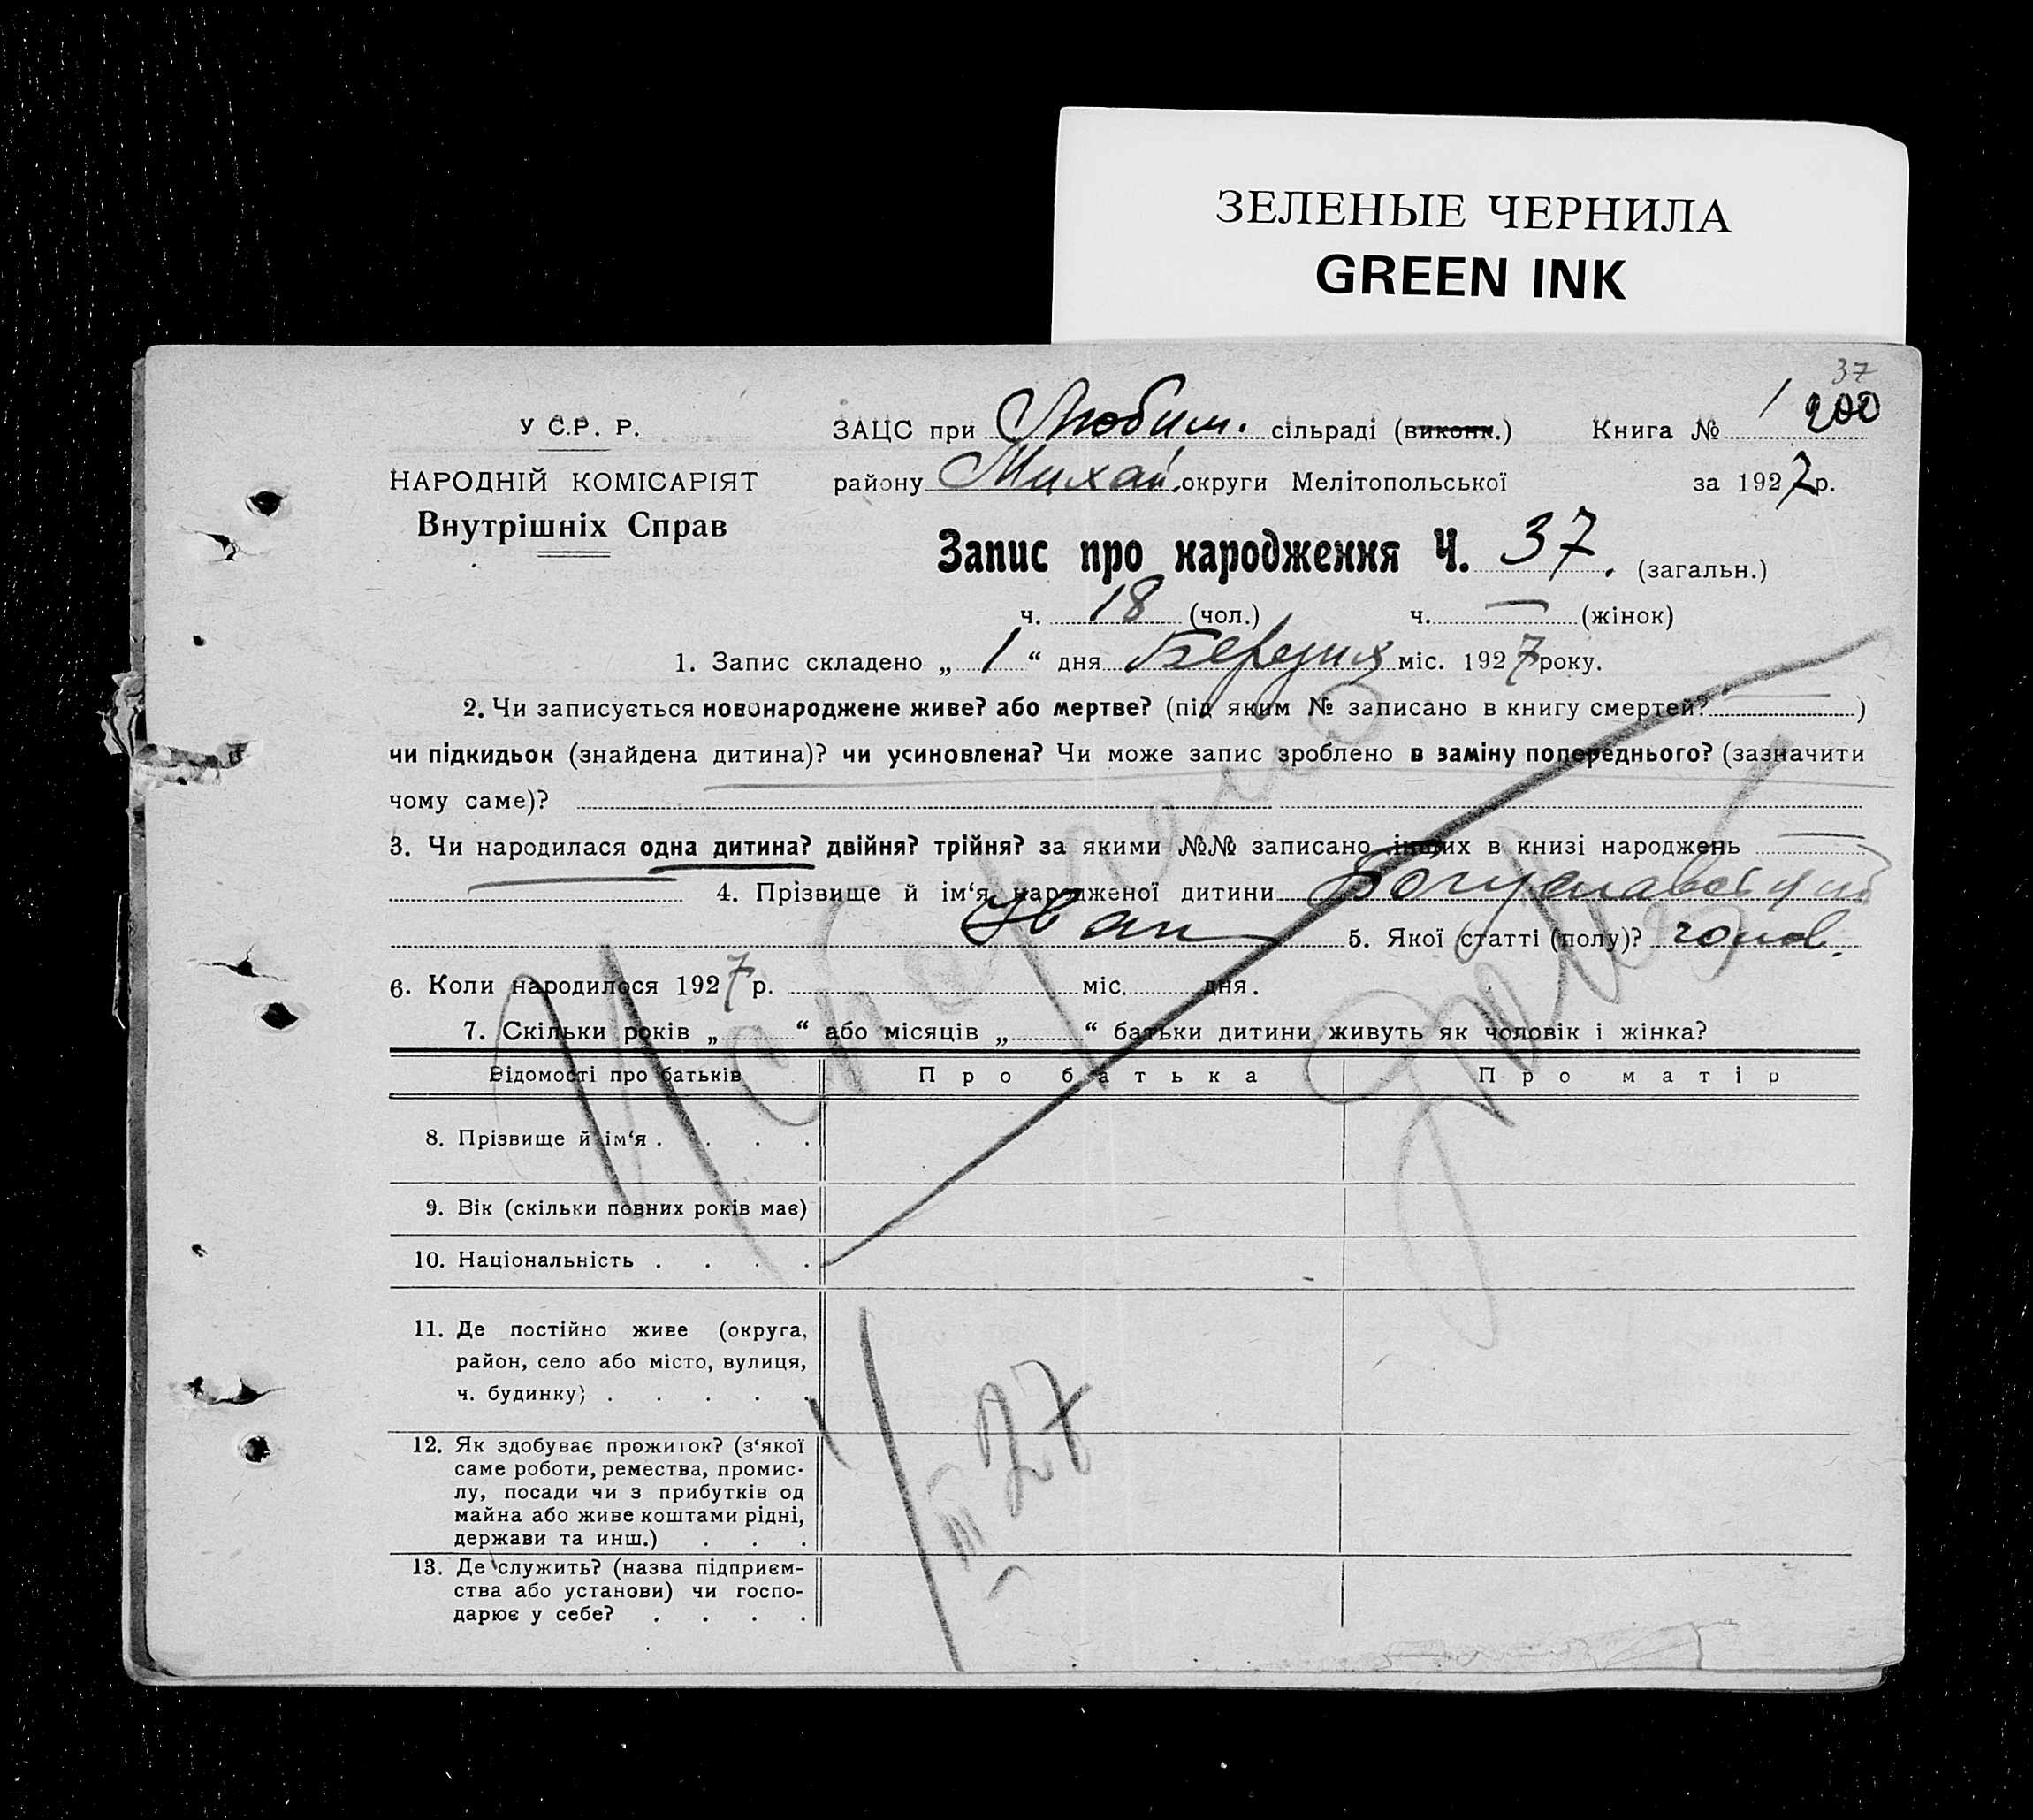 ЗЕЛЕНЫЕ ЧЕРНИЛА
GREEN INK
37
У С.Р. Р. ЗАЦС при Любим. сільраді (виконк.) Книга № 1 200
НАРОДНІЙ КОМІСАРІЯТ району Михай. округи Мелітопольської за 1927 р.
Внутрішніх Справ
Запис про народження Ч. 37. (загальн.)
ч. 18 (чол.) ч. — (жінок)
1. Запис складено „ 1 “ дня Березня міс. 1927 року.
2. Чи записується новонароджене живе? або мертве? (під яким № записано в книгу смертей? — )
чи підкидьок (знайдена дитина)? чи усиновлена? Чи може запис зроблено в заміну попереднього? (зазначити
чому саме)?
3. Чи народилася одна дитина? двійня? трійня? за якими №№ записано інших в книзі народжень —
— 4. Прізвище й ім‘я народженої дитини Богуславський
Иван 5. Якої статті (полу)? чолов.
6. Коли народилося 1927 р. міс. дня.
7. Скільки років „ “ або місяців „ “ батьки дитини живуть як чоловік і жінка?
Відомості про батьків Про батька Про матір
8. Прізвище й ім‘я . . . .
9. Вік (скільки повних років має)
10. Національність . . . .
11. Де постійно живе (округа,
район, село або місто, вулиця,
ч. будинку) . . . . .
12. Як здобуває прожиток? (з‘якої
саме роботи, ремества, промис-
лу, посади чи з прибутків од
майна або живе коштами рідні,
держави та инш.) . . .
13. Де служить? (назва підприєм-
ства або установи) чи госпо-
дарює у себе? . . . .
1/III 27